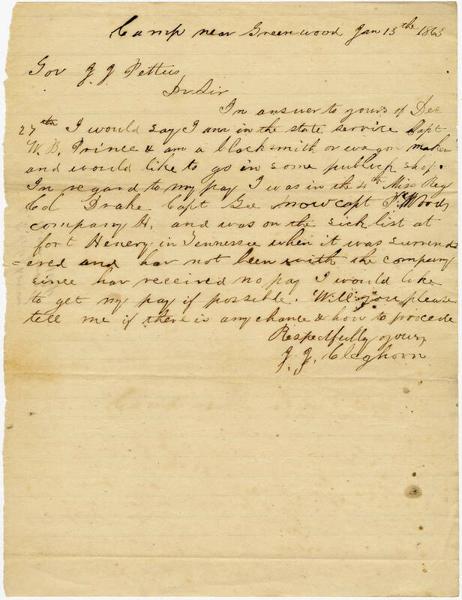 Camp near Greenwood Jan 13th 1863
Gov J J Pettus
Dr Sir
In answer to yours of Dec
27th I would say I am in the state service Capt
W. B. Prince & am a blacksmith or wagon maker
and would like to go in some publick shop.
In regard to my pay I was in the 4th Miss Reg
Col Drake Capt Gee now capt T. Woods
company H. and was on the sick list at
fort Henery in Tennessee when it was surrend
=ered and hav not been with the company
since hav received no pay I would like
to get my pay if possible. Will you please
tell me if there is any chance & how to procede
Respectfully yours
J. J. Cleghorn